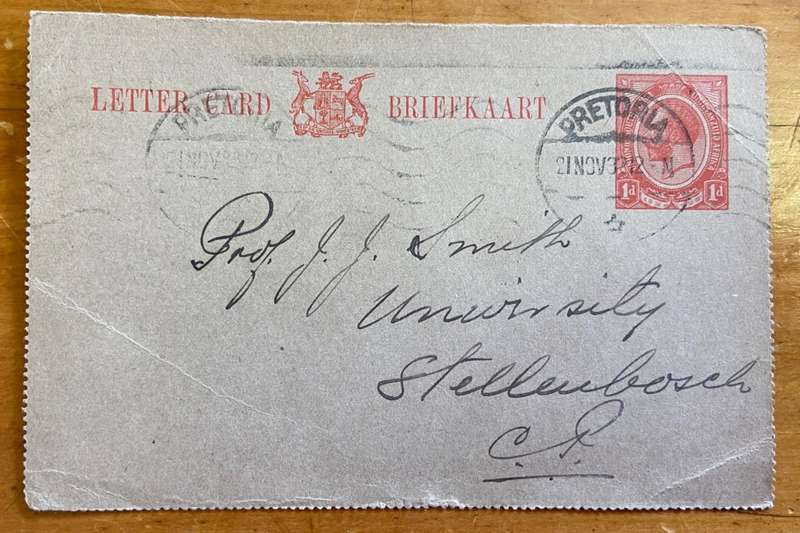 LETTER CARD BRIEFKAART
PRETORIA
PRETORIA
21 NOV 32 12 - N
1d 1d
Prof. J. J. Smith
University
Stellenbosch
C.P.